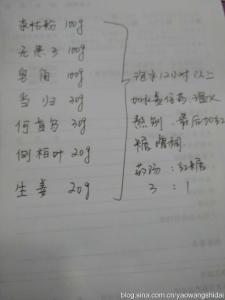 茶枯粉 100g
无患子 100g
皂角 100g
当归 30g
何首乌 30g
侧柏叶 20g
生姜 20g
泡水12小时以上
加水
熬制 最后加红
糖
药汤:红糖
3 : 1
blog.sina.com.cn/yaowangshidai